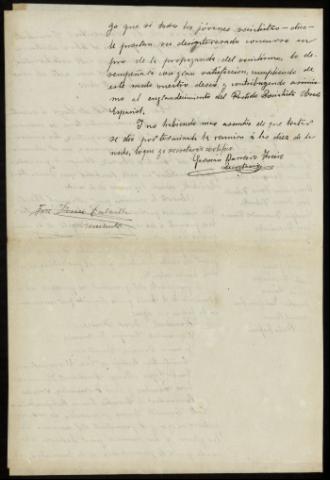 go que si todos los jóvenes socialistas
le prestan su desinteresado concurso en
pro de la propaganda del socialismo, lo de-
sempeñará con gran satisfacción, cumpliendo de
este modo nuestro deseo y contribuyendo asimis-
mo al engrandecimiento del Partido Socialista Obrero
Español.
Y no habiendo mas asuntos de que tratar
se dió por terminada la reunión á las diez de la
noche, lo que yo secretario certifico.
Secretario
José
Presidente